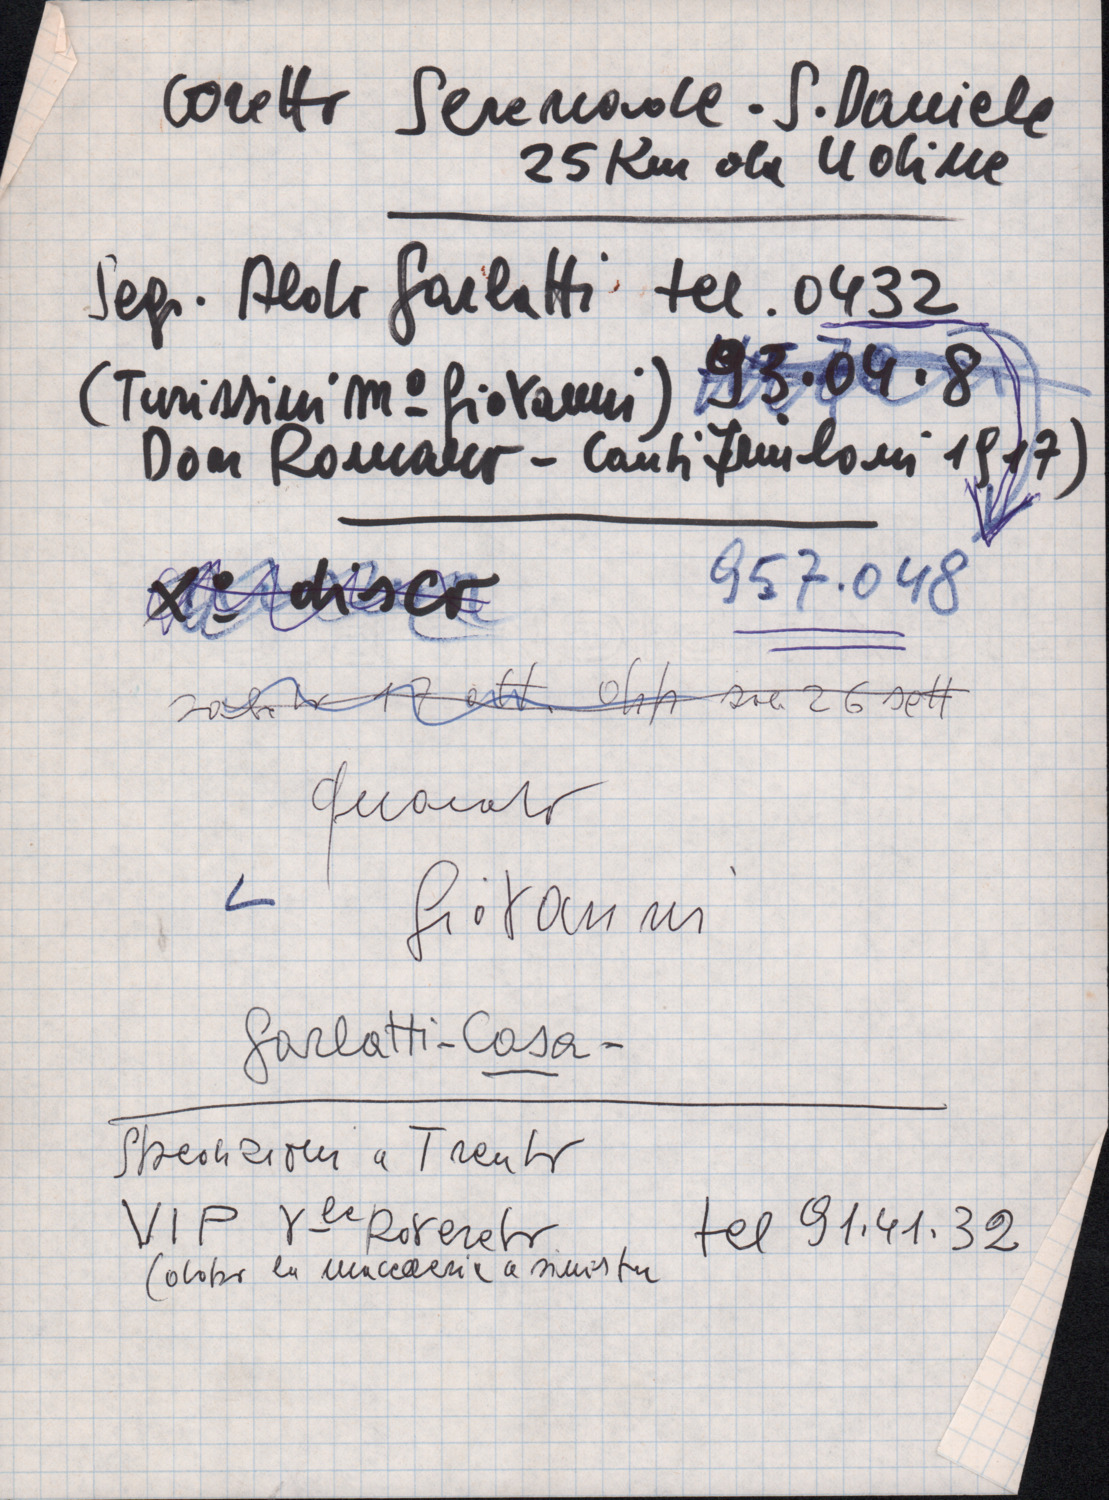 Coretto Serenade - S. Daniele
25 Km da Udine
Seg. Aldo Garlatti tel. 0432
93.04.8
(Turissini Mº Giovanni)
Don Romano - Canti Friulani 1917)
Xº disco
957.048
sabato 17 ott. opp. 26 sett
Giovanni
Garlatti - Casa -
Spedizioni a Trento
VIP Vle Rovereto tel 91.41.32
(dopo la a sinistra